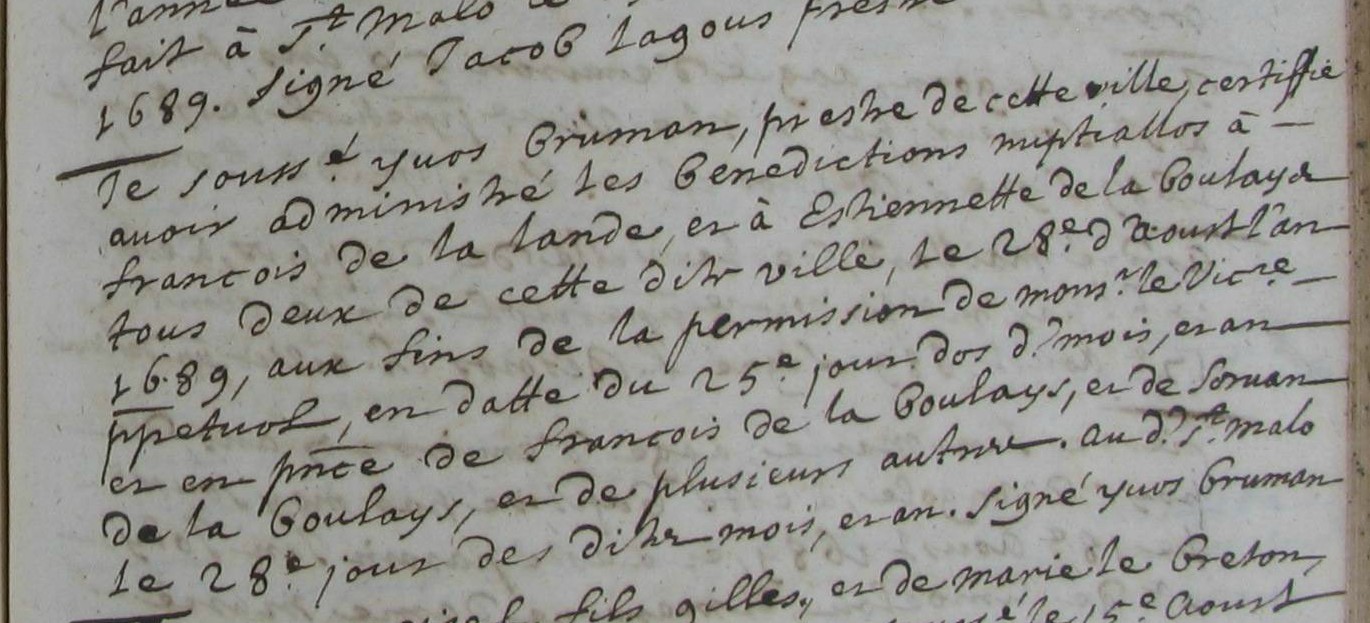 l'année
fait à St malo
1689. signé Jacob Lagous prestre
Je souss.é yuos Bruman, prestre de cette ville, certiffie
auoir administré les benedictions nuptialles à —
francois de la lande, et à Estiennette de la Boulaye
tous deux de cette ditte ville, le 28.e d'aoust l'an
1689, aux fins de la permission de mons.r le Vicre —
ppetuel, en datte du 25.e jour des d.s mois, et an
et en pnce de francois de la Boulays, et de Seruan
de la Boulays, et de plusieurs autres. au d.t St malo
le 28.e jour des dittes mois, et an. signé yuos Bruman
fils gilles, et de marie le Breton,
le 15.e Aoust